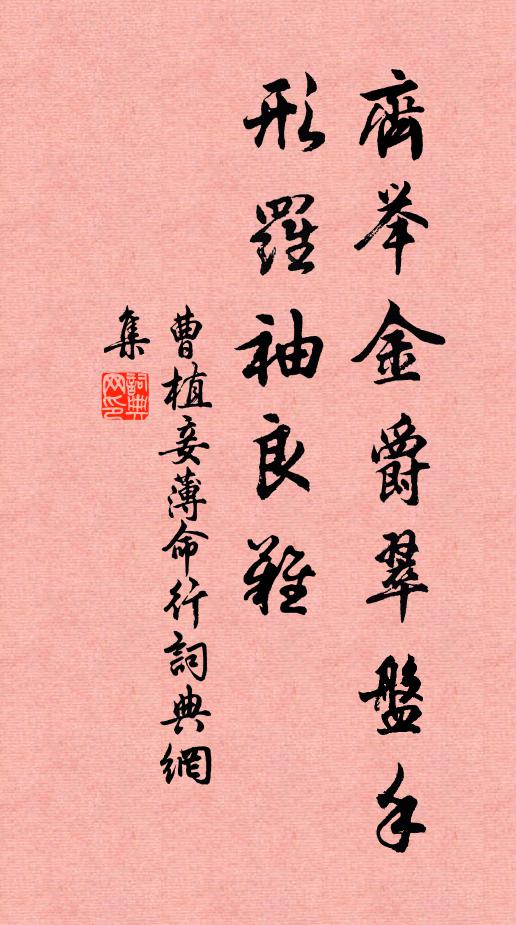 齊举金爵翠盤手
形羅袖良難
曹植妾薄命行詞典網
集
詞典网印